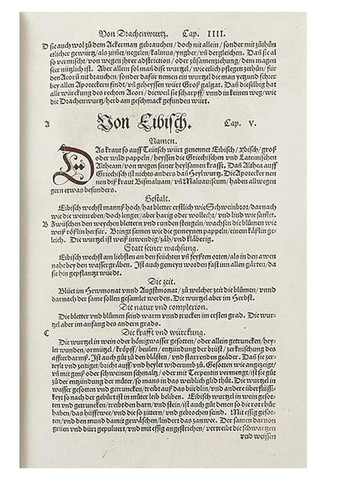 Von Drachenwurtz. Cap. IIII.
sie auch wol zů dem Ackerman gebrauchen / doch nit allein / sonder mit zůthůn
etlicher gewürtz / als zimet / negelin / kalmus / yngber / vñ dergleichen. Daß sie al
so vermischt / von wegen jhrer abstriction / oder zůsamenziehung / dem magen
seer nützlich ist. Aber allein sol mañ dise wurtzel / wie etlich pflegen zůthůn / für
den Acorũ nit brauchen / sonder dafür nemen ein wurtzel die man yetzund schier
bey allen Apoteckern findt / vñ heyssen Groß galgat. Dañ dieselbig hat
alle würckung des rechten Acori / dieweil sie scharpff / vnnd in keinen weg / wie
die Drachenwurtz / herb am geschmack gefunden würt.
A Von Eibisch. Cap. V.
Namen.
Das kraut so auff Teütsch würt genennet Eibisch / Ybisch / groß
oder wild pappeln / heyssen die Griechischen vnd Lateinischen
Altheam / von wegen seiner heylsamen krafft. Das Althea auff
Griechisch ist nichts anders dañ Heylwurtz. Die Apotecker nen
nen diß kraut Bismaluam / vñ Maluauiscum / haben all wegen
gern etwas besonders.
Gestalt.
Eibisch wechst mañs hoch / hat bletter
wie die / doch lenger / aber harig oder wollecht / vnd lind wie samet.
B Zwüschen den weychen blettern vnnd runden stengeln / wachsen die blůmen wie
weiß rößlin herfür. Bringt samen wie die gemeynen pappeln / einem käßlin ge-
leich. Die wurtzel ist weiß inwendig / zäh / vnd kläberig.
Statt seiner wachsung.
Eibisch wechst am liebsten an den feüchten vñ feyßten orten / als in den awen
nahe bey den wassergräben. Ist auch gemeyn worden fast inn allen gärten / da
sie hin gepflantzt würt.
Die zeit.
Blüet im Hewmonat vnnd Augstmonat / zů welcher zeit die blůmen / vnnd
darnach der samen sollen gesamlet werden. Die wurtzel aber im Herbst.
Die natur vnd complexion.
Die bletter vnd blůmen seind warm vnnd trucken im ersten grad. Die wur-
tzel aber im anfang des andern grads.
C Die krafft vnd würckung.
Die wurtzel in wein oder hönigwasser gesotten / oder allein getruncken / hey-
let wunden / ormützel / kröpff / beulen / entzündung der brüst / zerknischung des
affterdarmß. Ist auch gůt zů den bläsen / vnd starrenden geäder. Dañ sie zer-
teylt vnd zeitiget / bricht auff / vnd heylet widerumb zů. Gesotten wie angezeigt /
vñ mit genß oder schweinem schmaltz / oder mit Terpentin vermengt / ist sie gůt
zů der entzündung der můter / so mans in das weiblich glid thůt. Die wurtzel in
wasser gesotten vnd getruncken / treibt auß das bürdlin / vnd andere überflüssig-
keyt so nach der geburt ist in můter leib bliben. Eibisch wurtzel in wein gesot-
ten vnd getruncken / fürdert den harn / vnd stein / ist auch gůt denen so die rot rhůr
haben / das hüfftwee / vnd die so zittern / vnd gebrochen seind. Mit essig gesot-
ten / vnd den mund damit gewäschen / lindert das zanwee. Der samen daruon
grůn vnd dürr gepulvert / vnd mit essig angestrichen / vertreibt die schwartzen
vnd weissen